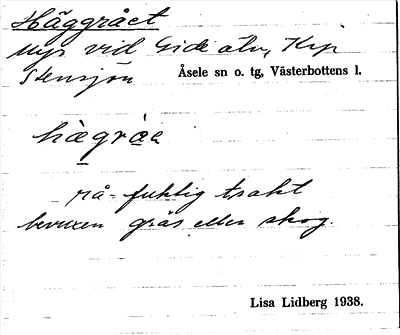 Häggrået
nyp vid Gide älv, Krp
Stensjön Åsele sn o. tg, Västerbottens l.
hägråe
rå = fuktig trakt
bevuxen gräs eller skog.
Lisa Lidberg 1938.